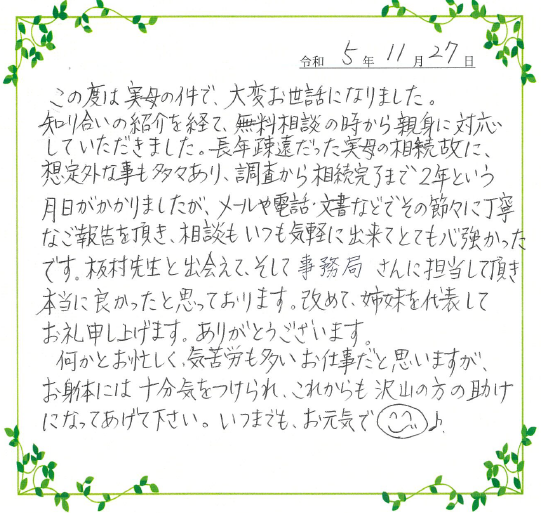 令和 5年 11月 27日
この度は実母の件で、大変お世話になりました。
知り合いの紹介を経て、無料相談の時から親身に対応
していただきました。長年疎遠だった実母の相続故に、
想定外な事も多々あり、調査から相続完了まで2年という
月日がかかりましたが、メールや電話・文書などでその節々に丁寧
なご報告を頂き、相談もいつも気軽に出来てとても心強かった
です。板村先生と出会えて、そして事務局 さんに担当して頂き
本当に良かったと思っております。改めて、姉妹を代表して
お礼申し上げます。ありがとうございます。
何かとお忙しく、気苦労も多いお仕事だと思いますが、
お身体には十分気をつけられ、これからも沢山の方の助け
になってあげて下さい。いつまでも、お元気で♪